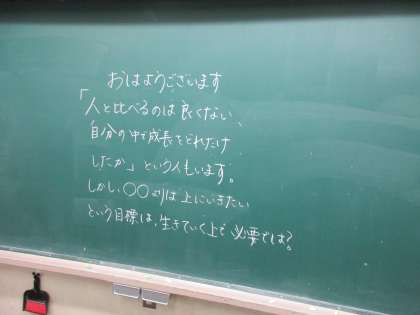 おはようございます
「人と比べるのは良くない、
自分の中で成長をどれだけ
したか」という人もいます。
しかし、〇〇よりは上にいきたい
という目標は、生きていく上で必要では?